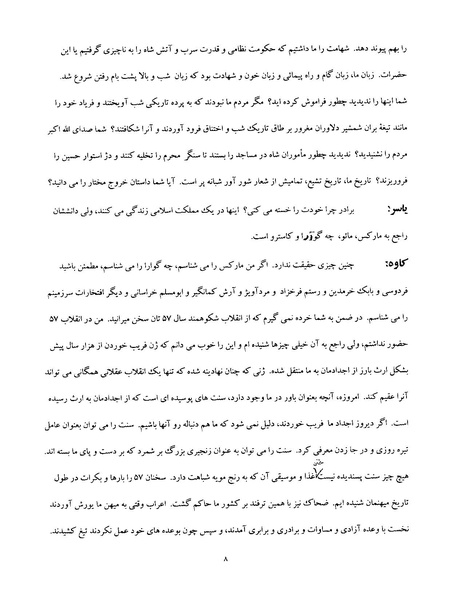 را بهم پیوند دهد. شهامت را ما داشتیم که حکومت نظامی و قدرت سرب و آتش شاه را به ناچیزی گرفتیم یا این
حضرات. زبان ما، زبان گام و راه پیمائی و زبان خون و شهادت بود که زبان شب و بالا پشت بام رفتن شروع شد.
شما اینها را ندیدید چطور فراموش کرده اید؟ مگر مردم ما نبودند که به پرده تاریکی شب آویختند و فریاد خود را
مانند تیغهٔ بران شمشیر دلاوران مغرور بر طاق تاریک شب و اختناق فرود آوردند و آنرا شکافتند؟ شما صدای الله اکبر
مردم را نشنیدید؟ ندیدید چطور مأموران شاه در مساجد را بستند تا سنگر محرم را تخلیه کنند و دژ استوار حسین را
فروریزند؟ تاریخ ما، تاریخ تشیع، تمامیش از شعار شور آور شبانه پر است. آیا شما داستان خروج مختار را می دانید؟
یاسر: برادر چرا خودت را خسته می کنی؟ اینها در یک مملکت اسلامی زندگی می کنند، ولی دانششان
راجع به مارکس، مائو، چه گوآرا و کاسترو است.
کاوه: چنین چیزی حقیقت ندارد. اگر من مارکس را می شناسم، چه گوارا را می شناسم، مطمئن باشید
فردوسی و بابک خرمدین و رستم فرخزاد و مردآویژ و آرش کمانگیر و ابومسلم خراسانی و دیگر افتخارات سرزمینم
را می شناسم. در ضمن به شما خرده نمی گیرم که از انقلاب شکوهمند سال ۵۷ تان سخن میرانید. من در انقلاب ۵۷
حضور نداشتم، ولی راجع به آن خیلی چیزها شنیده ام و این را خوب می دانم که ژن فریب خوردن از هزار سال پیش
بشکل ارث بارز از اجدادمان به ما منتقل شده. ژنی که چنان نهادینه شده که تنها یک انقلاب عقلانی همگانی می تواند
آنرا عقیم کند. امروزه، آنچه بعنوان باور در ما وجود دارد، سنت های پوسیده ای است که از اجدادمان به ارث رسیده
است. اگر دیروز اجداد ما فریب خوردند، دلیل نمی شود که ما هم دنباله رو آنها باشیم. سنت را می توان بعنوان عامل
تیره روزی و در جا زدن معرفی کرد. سنت را می توان به عنوان زنجیری بزرگ بر شمرد که بر دست و پای ما بسته اند.
هیچ چیز سنت پسندیده نیست غذا و موسیقی آن که به رنج مویه شباهت دارد. سخنان ۵۷ را بارها و بکرات در طول
تاریخ میهنمان شنیده ایم. ضحاک نیز با همین ترفند بر کشور ما حاکم گشت. اعراب وقتی به میهن ما یورش آوردند
نخست با وعده آزادی و مساوات و برادری و برابری آمدند، و سپس چون بوعده های خود عمل نکردند تیغ کشیدند.
۸